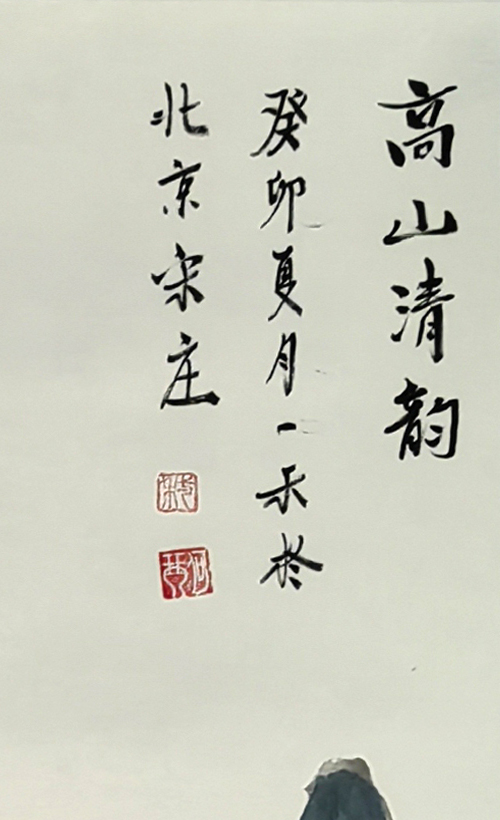 高山清韵
癸卯夏月一禾於
北京宋庄